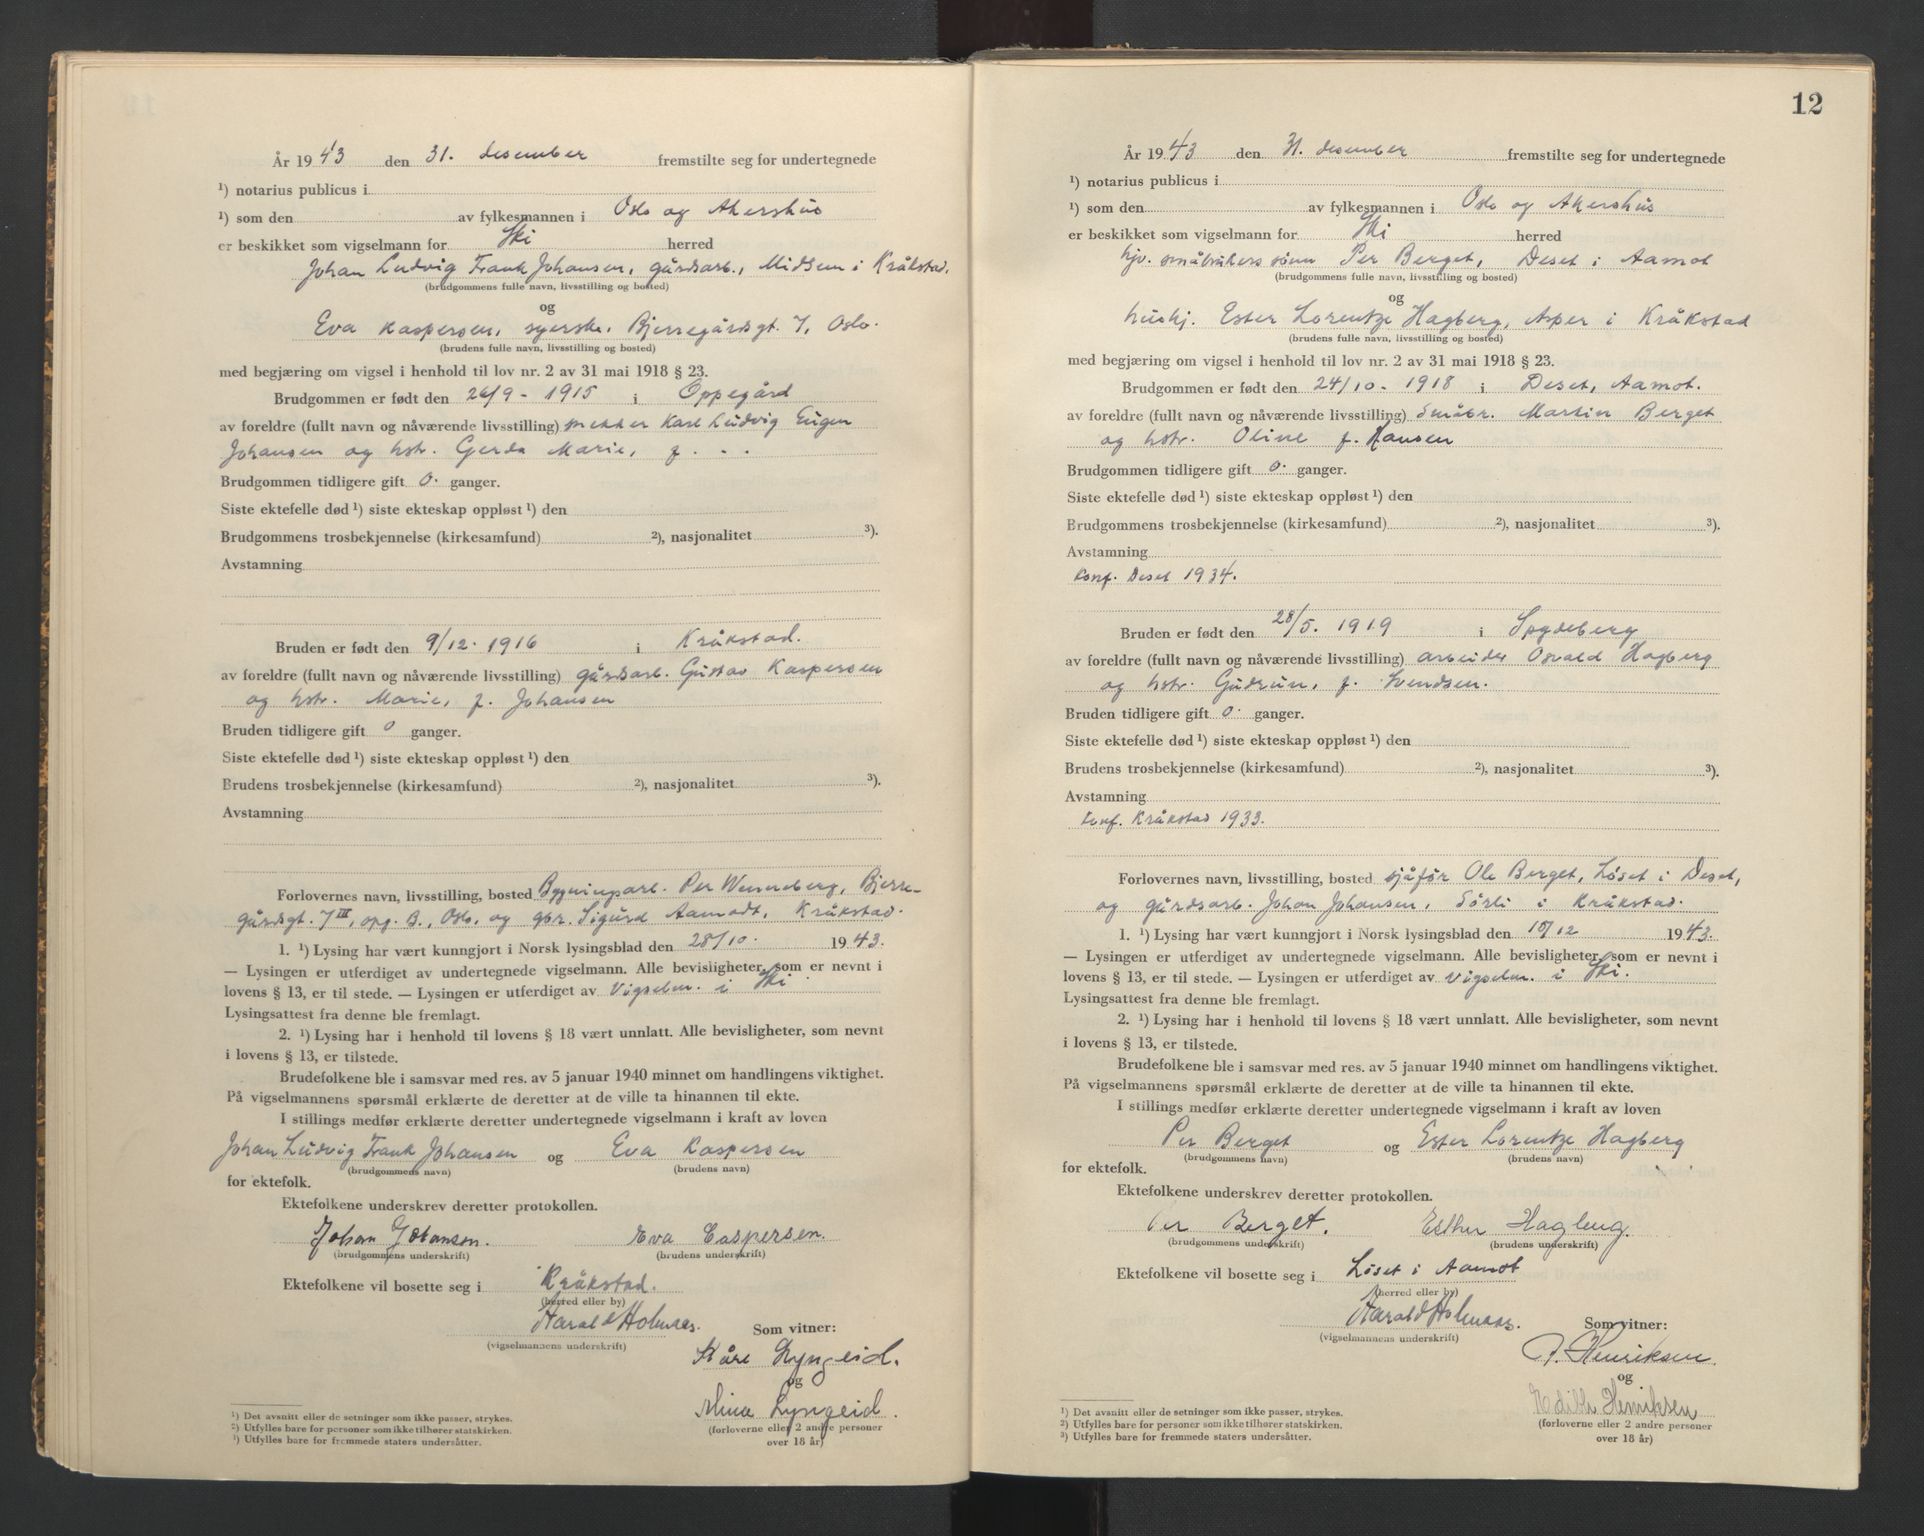 År 1943 den 31. desember fremstilte seg for undertegnede
¹) notarius publicus i
¹) som den av fylkesmannen i Oslo og Akershus
er beskikket som vigselmann for Ski herred
Johan Ludvig Frank Johansen, gårdsarb., Midsem i Kråkstad.
(brudgommens fulle navn, livsstilling og bosted)
og
Eva Kaspersen, syerske, Bjerregårdsgt. 7, Oslo.
(brudens fulle navn, livsstilling og bosted)
med begjæring om vigsel i henhold til lov nr. 2 av 31 mai 1918 § 23.
Brudgommen er født den 26/9 - 1915 i Oppegård
av foreldre (fullt navn og nåværende livsstilling) Karl Ludvig Eugen
Johansen og hstr. Gerda Marie, f. . .
Brudgommen tidligere gift 0. ganger.
Siste ektefelle død ¹) siste ekteskap oppløst ¹) den
Brudgommens trosbekjennelse (kirkesamfund) ²), nasjonalitet ³).
Avstamning
Bruden er født den 9/12. 1916 i Kråkstad.
av foreldre (fullt navn og nåværende livsstilling) gårdsarb. Gustav Kaspersen
og hstr. Marie, f. Johansen
Bruden tidligere gift 0 ganger.
Siste ektefelle død ¹) siste ekteskap oppløst ¹) den
Brudens trosbekjennelse (kirkesamfund) ²), nasjonalitet ³).
Avstamning
Forlovernes navn, livsstilling, bosted Bygningsarb. Per Wenneberg, Bjerre-
gårdsgt. 7 III, opg. B., Oslo, og gbr. Sigurd Aamodt, Kråkstad.
1. ¹) Lysing har vært kunngjort i Norsk lysingsblad den 28/10. 1943.
— Lysingen er utferdiget av undertegnede vigselmann. Alle bevisligheter, som er nevnt i
lovens § 13, er til stede. — Lysingen er utferdiget av Vigselm. i Ski
Lysingsattest fra denne ble fremlagt.
2. ¹) Lysing har i henhold til lovens § 18 vært unnlatt. Alle bevisligheter, som nevnt
i lovens § 13, er tilstede.
Brudefolkene ble i samsvar med res. av 5 januar 1940 minnet om handlingens viktighet.
På vigselmannens spørsmål erklærte de deretter at de ville ta hinannen til ekte.
I stillings medfør erklærte deretter undertegnede vigselmann i kraft av loven
Johan Ludvig Frank Johansen og Eva Kaspersen
(brudgommens navn) (brudens navn)
for ektefolk.
Ektefolkene underskrev deretter protokollen.
Johan Johansen. Eva Caspersen.
(brudgommens underskrift) (brudens underskrift)
Ektefolkene vil bosette seg i Kråkstad.
(herred eller by)
Harald Holmaas. Som vitner:
(vigselmannens underskrift)
Kåre Lyngeid.
og
Mina Lyngeid.
(forloverne eller 2 andre personer
over 18 år)
¹) Det avsnitt eller de setninger som ikke passer, strykes.
²) Utfylles bare for personer som ikke tilhører statskirken.
³) Utfylles bare for fremmede staters undersåtter.
12
År 1943 den 31. desember fremstilte seg for undertegnede
¹) notarius publicus i
¹) som den av fylkesmannen i Oslo og Akershus
er beskikket som vigselmann for Ski herred
hjv. småbrukers sønn Per Berget, Deset i Aamot
(brudgommens fulle navn, livsstilling og bosted)
og
hushj. Ester Lorentze Hagberg, Asper i Kråkstad
(brudens fulle navn, livsstilling og bosted)
med begjæring om vigsel i henhold til lov nr. 2 av 31 mai 1918 § 23.
Brudgommen er født den 24/10 - 1918 i Deset, Aamot.
av foreldre (fullt navn og nåværende livsstilling) Småbr. Martin Berget
og hstr. Oline f. Hansen
Brudgommen tidligere gift 0. ganger.
Siste ektefelle død ¹) siste ekteskap oppløst ¹) den
Brudgommens trosbekjennelse (kirkesamfund) ²), nasjonalitet ³).
Avstamning
Konf. Deset 1934.
Bruden er født den 28/5. 1919 i Spydeberg
av foreldre (fullt navn og nåværende livsstilling) arbeider Osvald Hagberg
og hstr. Gudrun, f. Svendsen.
Bruden tidligere gift 0. ganger.
Siste ektefelle død ¹) siste ekteskap oppløst ¹) den
Brudens trosbekjennelse (kirkesamfund) ²), nasjonalitet ³).
Avstamning
Konf. Kråkstad 1933.
Forlovernes navn, livsstilling, bosted sjåfør Ole Berget, Løset i Deset,
og gårdsarb. Johan Johansen, Sørli i Kråkstad.
1. ¹) Lysing har vært kunngjort i Norsk lysingsblad den 10/12 1943.
— Lysingen er utferdiget av undertegnede vigselmann. Alle bevisligheter, som er nevnt i
lovens § 13, er til stede. — Lysingen er utferdiget av Vigselm. i Ski.
Lysingsattest fra denne ble fremlagt.
2. ¹) Lysing har i henhold til lovens § 18 vært unnlatt. Alle bevisligheter, som nevnt
i lovens § 13, er tilstede.
Brudefolkene ble i samsvar med res. av 5 januar 1940 minnet om handlingens viktighet.
På vigselmannens spørsmål erklærte de deretter at de ville ta hinannen til ekte.
I stillings medfør erklærte deretter undertegnede vigselmann i kraft av loven
Per Berget og Ester Lorentze Hagberg
(brudgommens navn) (brudens navn)
for ektefolk.
Ektefolkene underskrev deretter protokollen.
Per Berget. Esther Hagberg.
(brudgommens underskrift) (brudens underskrift)
Ektefolkene vil bosette seg i Løset i Aamot
(herred eller by)
Harald Holmaas. Som vitner:
(vigselmannens underskrift)
Henriksen.
og
Edith Henriksen
(forloverne eller 2 andre personer
over 18 år)
¹) Det avsnitt eller de setninger som ikke passer, strykes.
²) Utfylles bare for personer som ikke tilhører statskirken.
³) Utfylles bare for fremmede staters undersåtter.